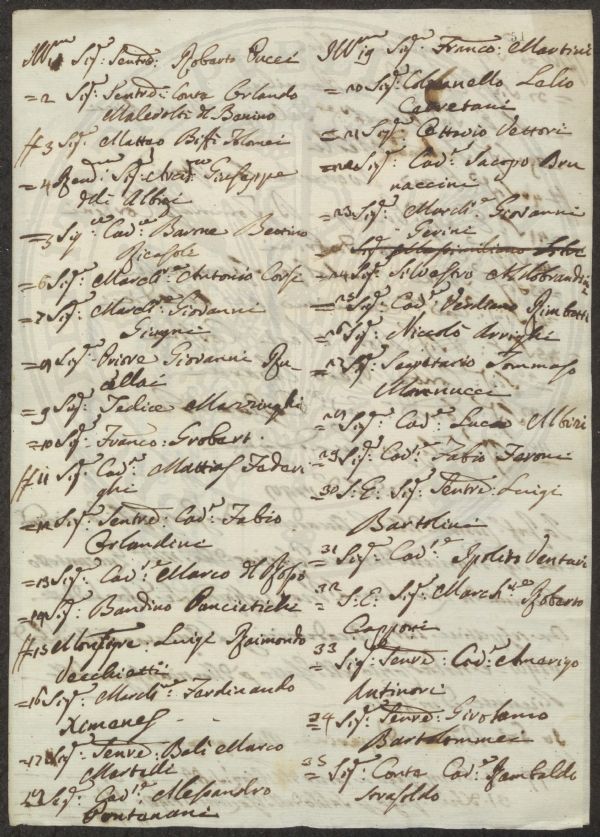 Ill.mi Sig.r Senre: Roberto Pucci
=2 Sig.r Senre: Conte Orlando
Malevolti del Benino
ff3 Sig.r Matteo Biffi Tolomei
=4 Rend.mo Sig.r Arcid.no Giuseppe
dell Albizi
=5 Sig.r Cav.re Barne Bettino
Ricasole
=6 Sig.r March: Antonio Corsi
=7 Sig.r March: Giovanni
Giugni
Sig.r Priore Giovanni Ru-
cellai
=9 Sig.r Felice Mazzinghi
=10 Sig.r Franco: Grobert
ff11 Sig.r Cav.re Mattias Federi
ghi
Sig.r Senre: Cav.re Fabio
Orlandini
=13 Sig.r Cav.re Marco del Rosso
=14 Sig.r Bandino Panciatichi
ff15 Luigi Raimondo
Vecchietti
=16 Sig.r March: Ferdinando
Ximenes
=17 Sig.r Senre: Bali Marco
Martelli
Sig.r Cav.re Alessandro
Pontanani
51
Ill.mi 19 Sig.r Franco: Martini
=20 Sig.r Colonnello Lelio
Cerretani
=21 Sig.r Ottavio Vettori
=22 Sig.r Cav.re Jacopo Bru
naccini
=23 Sig.r March: Giovanni
Gerini
Sig.r Massimiliano
=24 Sig.r Silvestro Aldobrandini
=25 Sig.r Cav.re Verdiano Rimbotti
=26 Sig.r Niccolò Arrighi
=27 Sig.r Segretario Tommaso
Mannucci
Sig.r Cav.re Luca Albizi
=29 Sig.r Cav.re Fabio Feroni
=30 S: E: Sig.r Senre: Luigi
Bartolini
=31 Sig.r Cav.re Ipolito Venturi
=32 S: E: Sig.r March.se Roberto
Capponi
33
= Sig.r Senre: Cav.re Amerigo
Antinori
=34 Sig.r Senre: Girolamo
Bartolommei
35
= Sig.r Conte Cav.re Rambaldo
Strasoldo